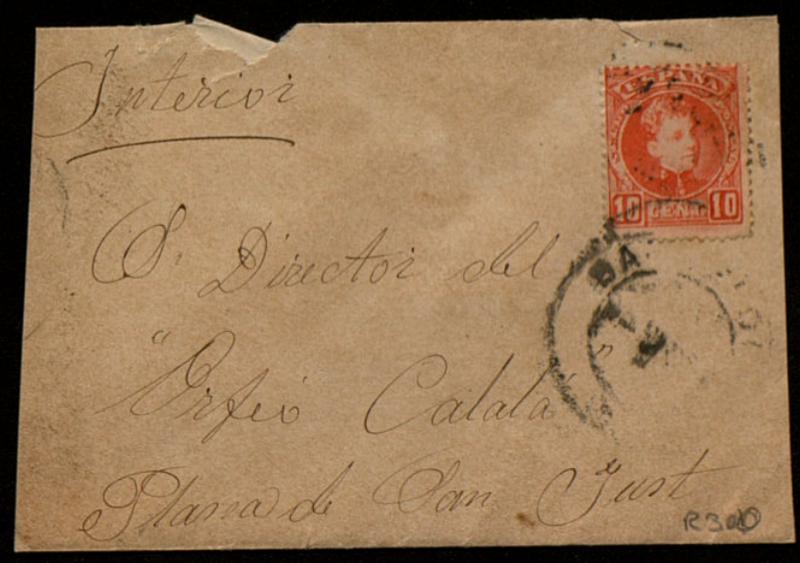 Interior
ESPAÑA
10 CENT. 10
BA
S. Director del
"Orfeó Catalá"
Plassa de San Just
R300